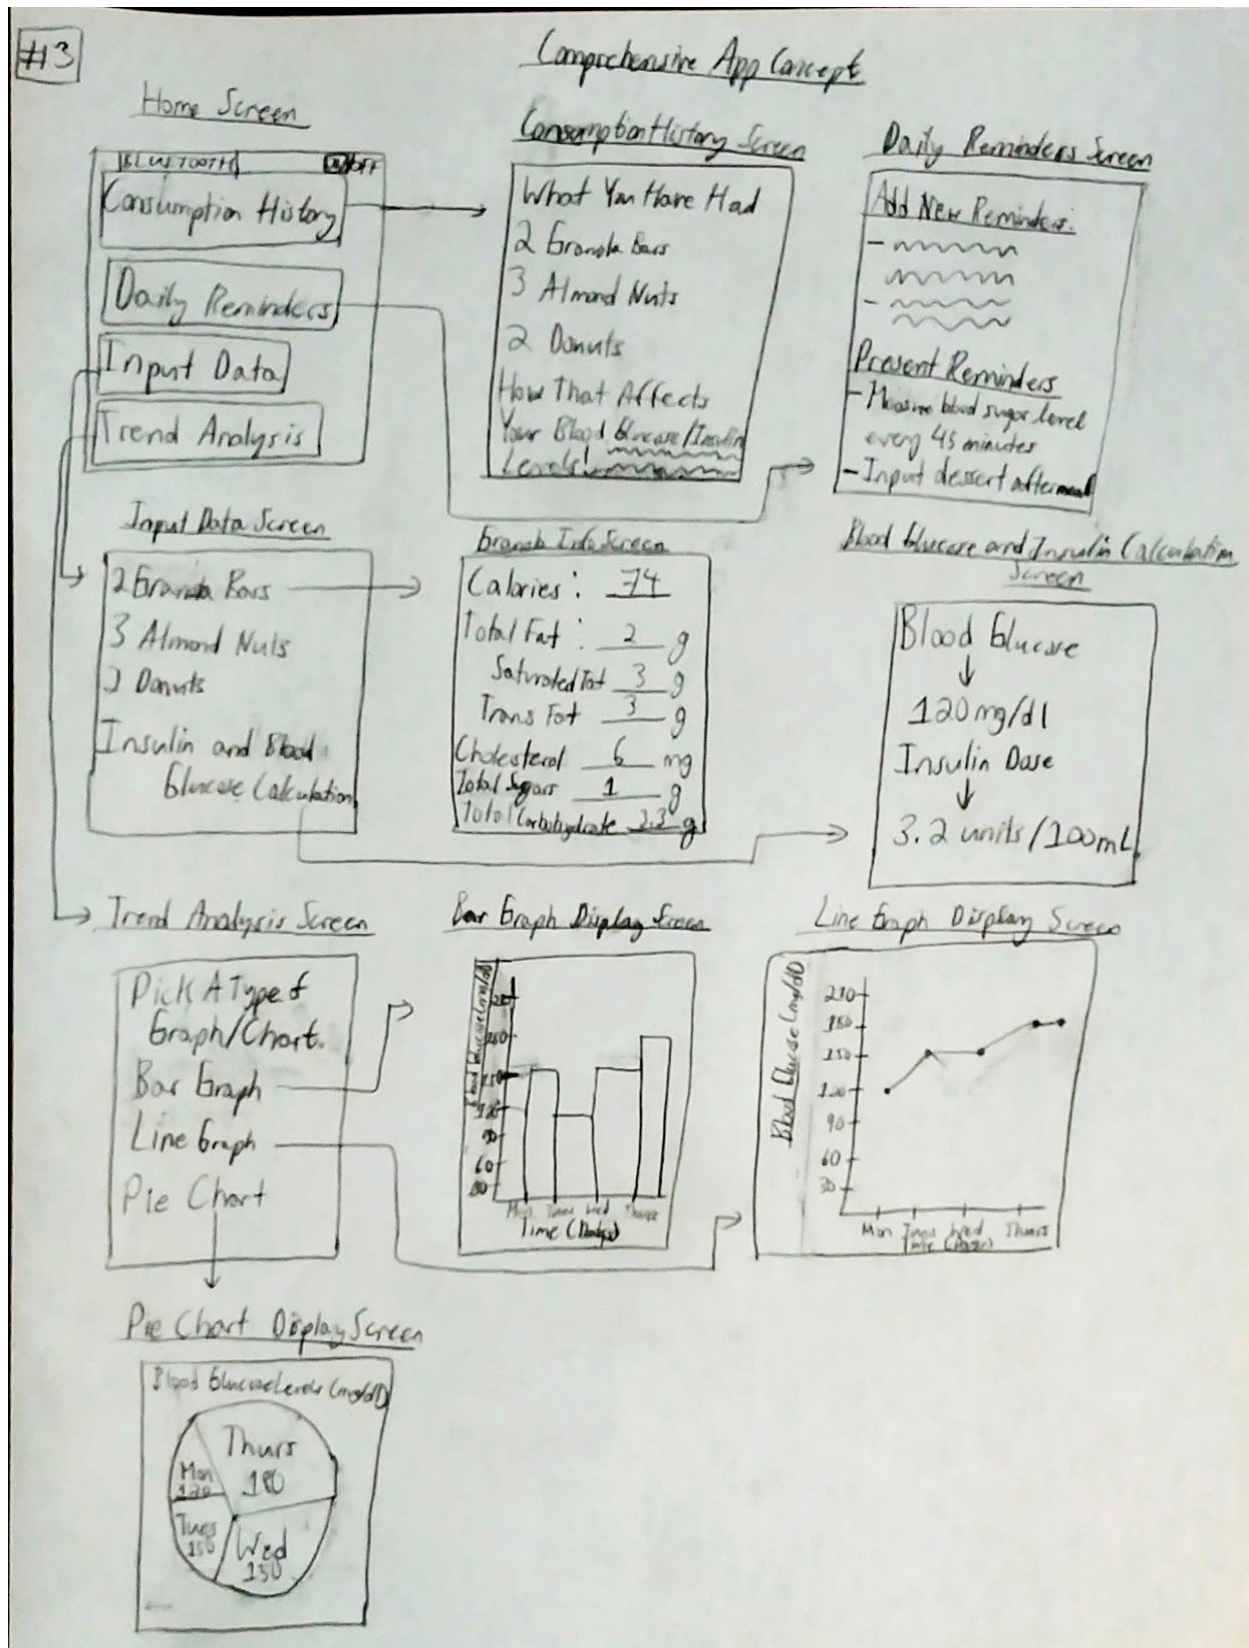 #3
Comprehensive App Concept
Home Screen
BLUETOOTH
OFF
Consumption History
Daily Reminders
Input Data
Trend Analysis
Consumption History Screen
What You Have Had
2 Granola Bars
3 Almond Nuts
2 Donuts
How That Affects
Your Blood Glucose/Insulin
Levels!
Daily Reminders Screen
Add New Reminders:
Present Reminders
- Measure blood sugar level
every 45 minutes
- Input dessert after meal
Input Data Screen
2 Granola Bars
3 Almond Nuts
2 Donuts
Insulin and Blood
Glucose Calculation
Granola Info Screen
Calories: 74
Total Fat: 2 g
Saturated Fat 3 g
Trans Fat 3 g
Cholesterol 6 mg
Total Sugars 1 g
Total Carbohydrate 2.3 g
Blood Glucose and Insulin Calculation
Screen
Blood Glucose
↓
120 mg/dl
Insulin Dose
↓
3.2 units/100mL
Trend Analysis Screen
Pick A Type of
Graph/Chart.
Bar Graph
Line Graph
Pie Chart
Bar Graph Display Screen
Blood Glucose (mg/dl)
150
120
90
60
Mon Tues Wed Thurs
Time (Days)
Line Graph Display Screen
Blood Glucose (mg/dl)
210
180
150
120
90
60
30
Mon Tues Wed Thurs
Time (Days)
Pie Chart Display Screen
Blood Glucose Levels (mg/dl)
Thurs
180
Mon
120
Tues
150
Wed
150